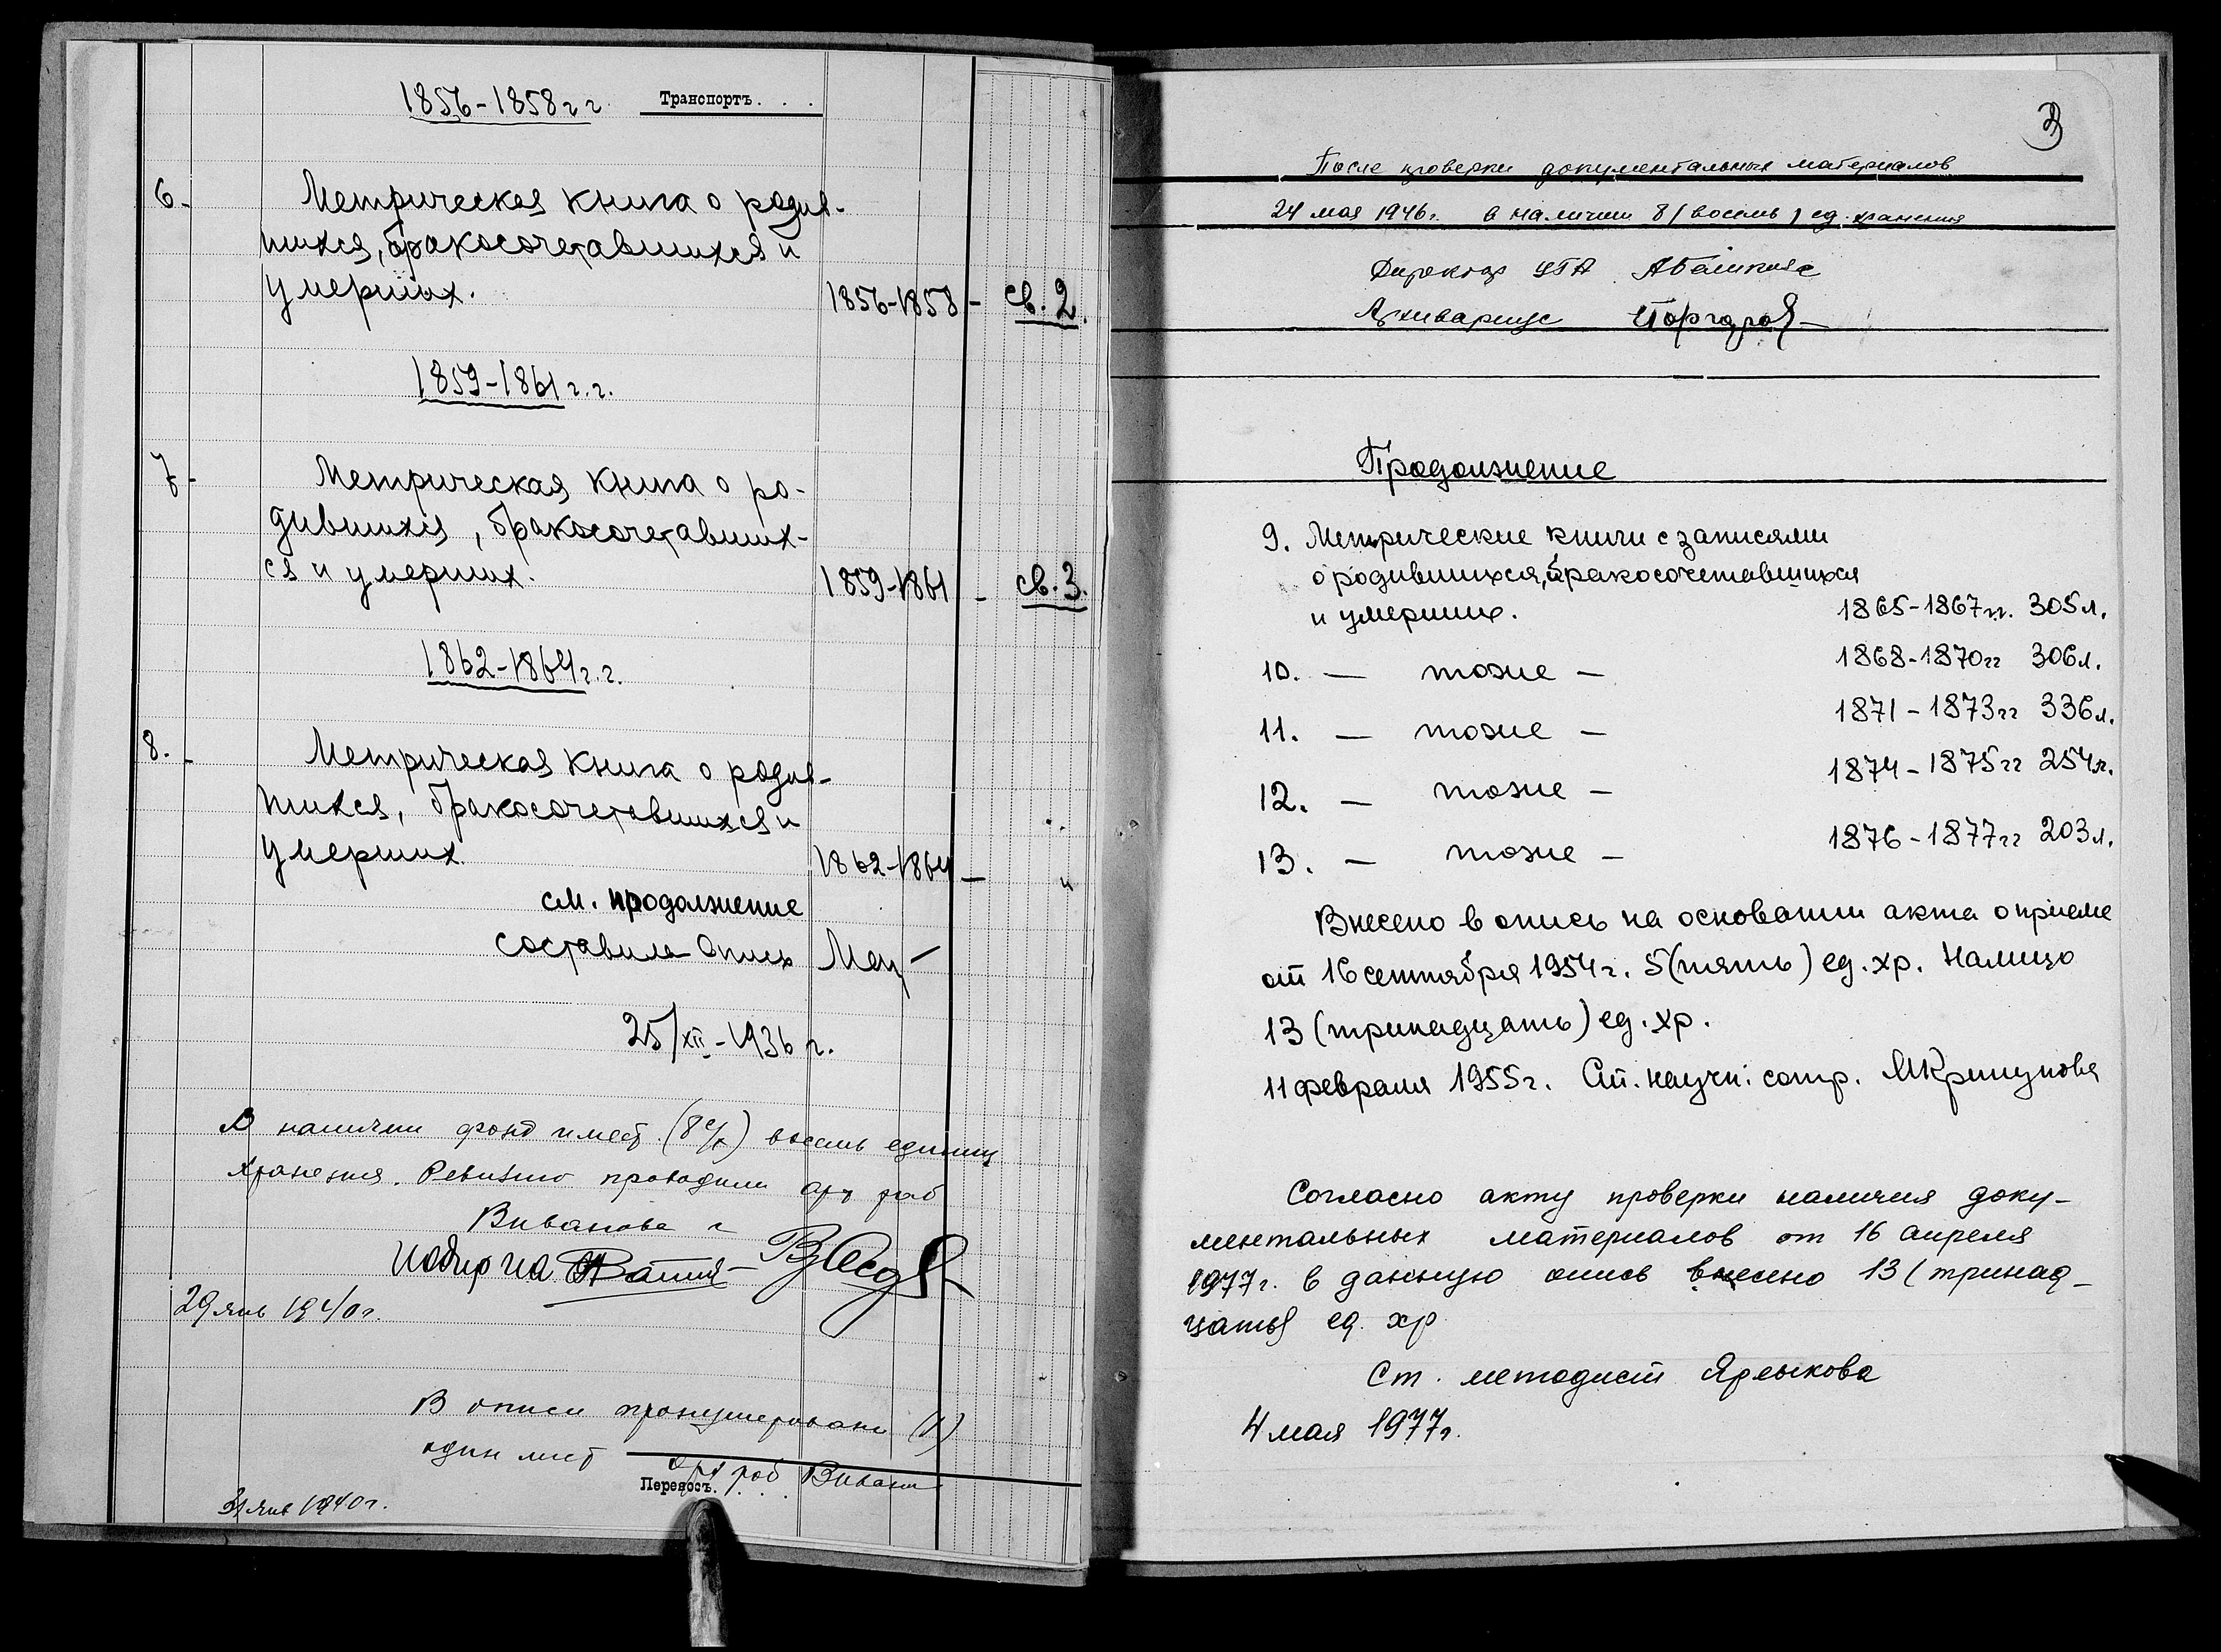 1856-1858 г г. Транспортъ. . .
6. Метрическая книга о родив-
шихся, бракосочетавшихся и
умерших. 1856-1858 - св. 2.
1859-1861 г. г.
7- Метрическая книга о ро-
дившихся, бракосочетавших-
ся и умерших. 1859-1861 - св. 3.
1862-1864 г. г.
8. - Метрическая книга о родив-
шихся, бракосочетавшихся и
умерших. 1862-1864 - "
см. продолжение
составила опись
25/XII-1936 г.
В наличии фонд имеет (8 е/х) восемь единиц
хранения. Ревизию проводили арх раб
Виванова и
29 янв 1940 г.
В описи пронумерован (1)
один лист
арх раб
Переносъ. . . .
31 янв 1940 г.
3
После проверки документальных материалов
24 мая 1946 г. в наличии 8 (восемь) ед. хранения
Директор ЦГА
Архивариус
Продолжение
9. Метрические книги с записями
о родившихся, бракосочетавшихся
и умерших. 1865-1867 гг. 305 л.
10. — тоже — 1868-1870 гг 306 л.
11. — тоже — 1871-1873 гг 336 л.
12. — тоже — 1874-1875 гг 254 л.
13. — тоже — 1876-1877 гг 203 л.
Внесено в опись на основании акта о приеме
от 16 сентября 1954 г. 5 (пять) ед. хр. Налицо
13 (тринадцать) ед. хр.
11 февраля 1955 г. Ст. научн. сотр. МКришунова
Согласно акту проверки наличия доку-
ментальных материалов от 16 апреля
1977 г. в данную опись внесено 13 (тринад-
цать) ед. хр
Ст. методист Ярлыкова
4 мая 1977 г.